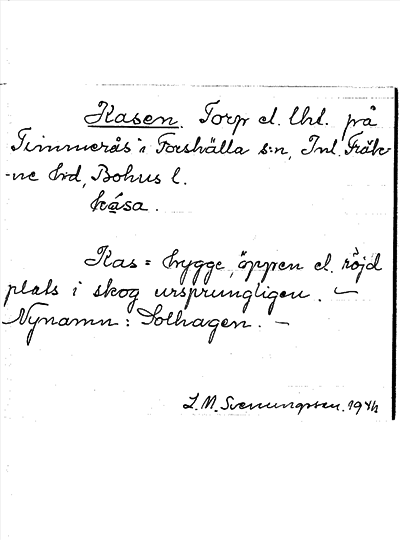 Kasen. Torp el. lht. på
Timmerås i Forshälla s:n, Inl. Fräke-
-ne hd, Bohus l.
kåsa.
Kas = hygge, öppen el. röjd
plats i skog ursprungligen. —
Nynamn: Solhagen. —
L.M. Svenungsson. 194